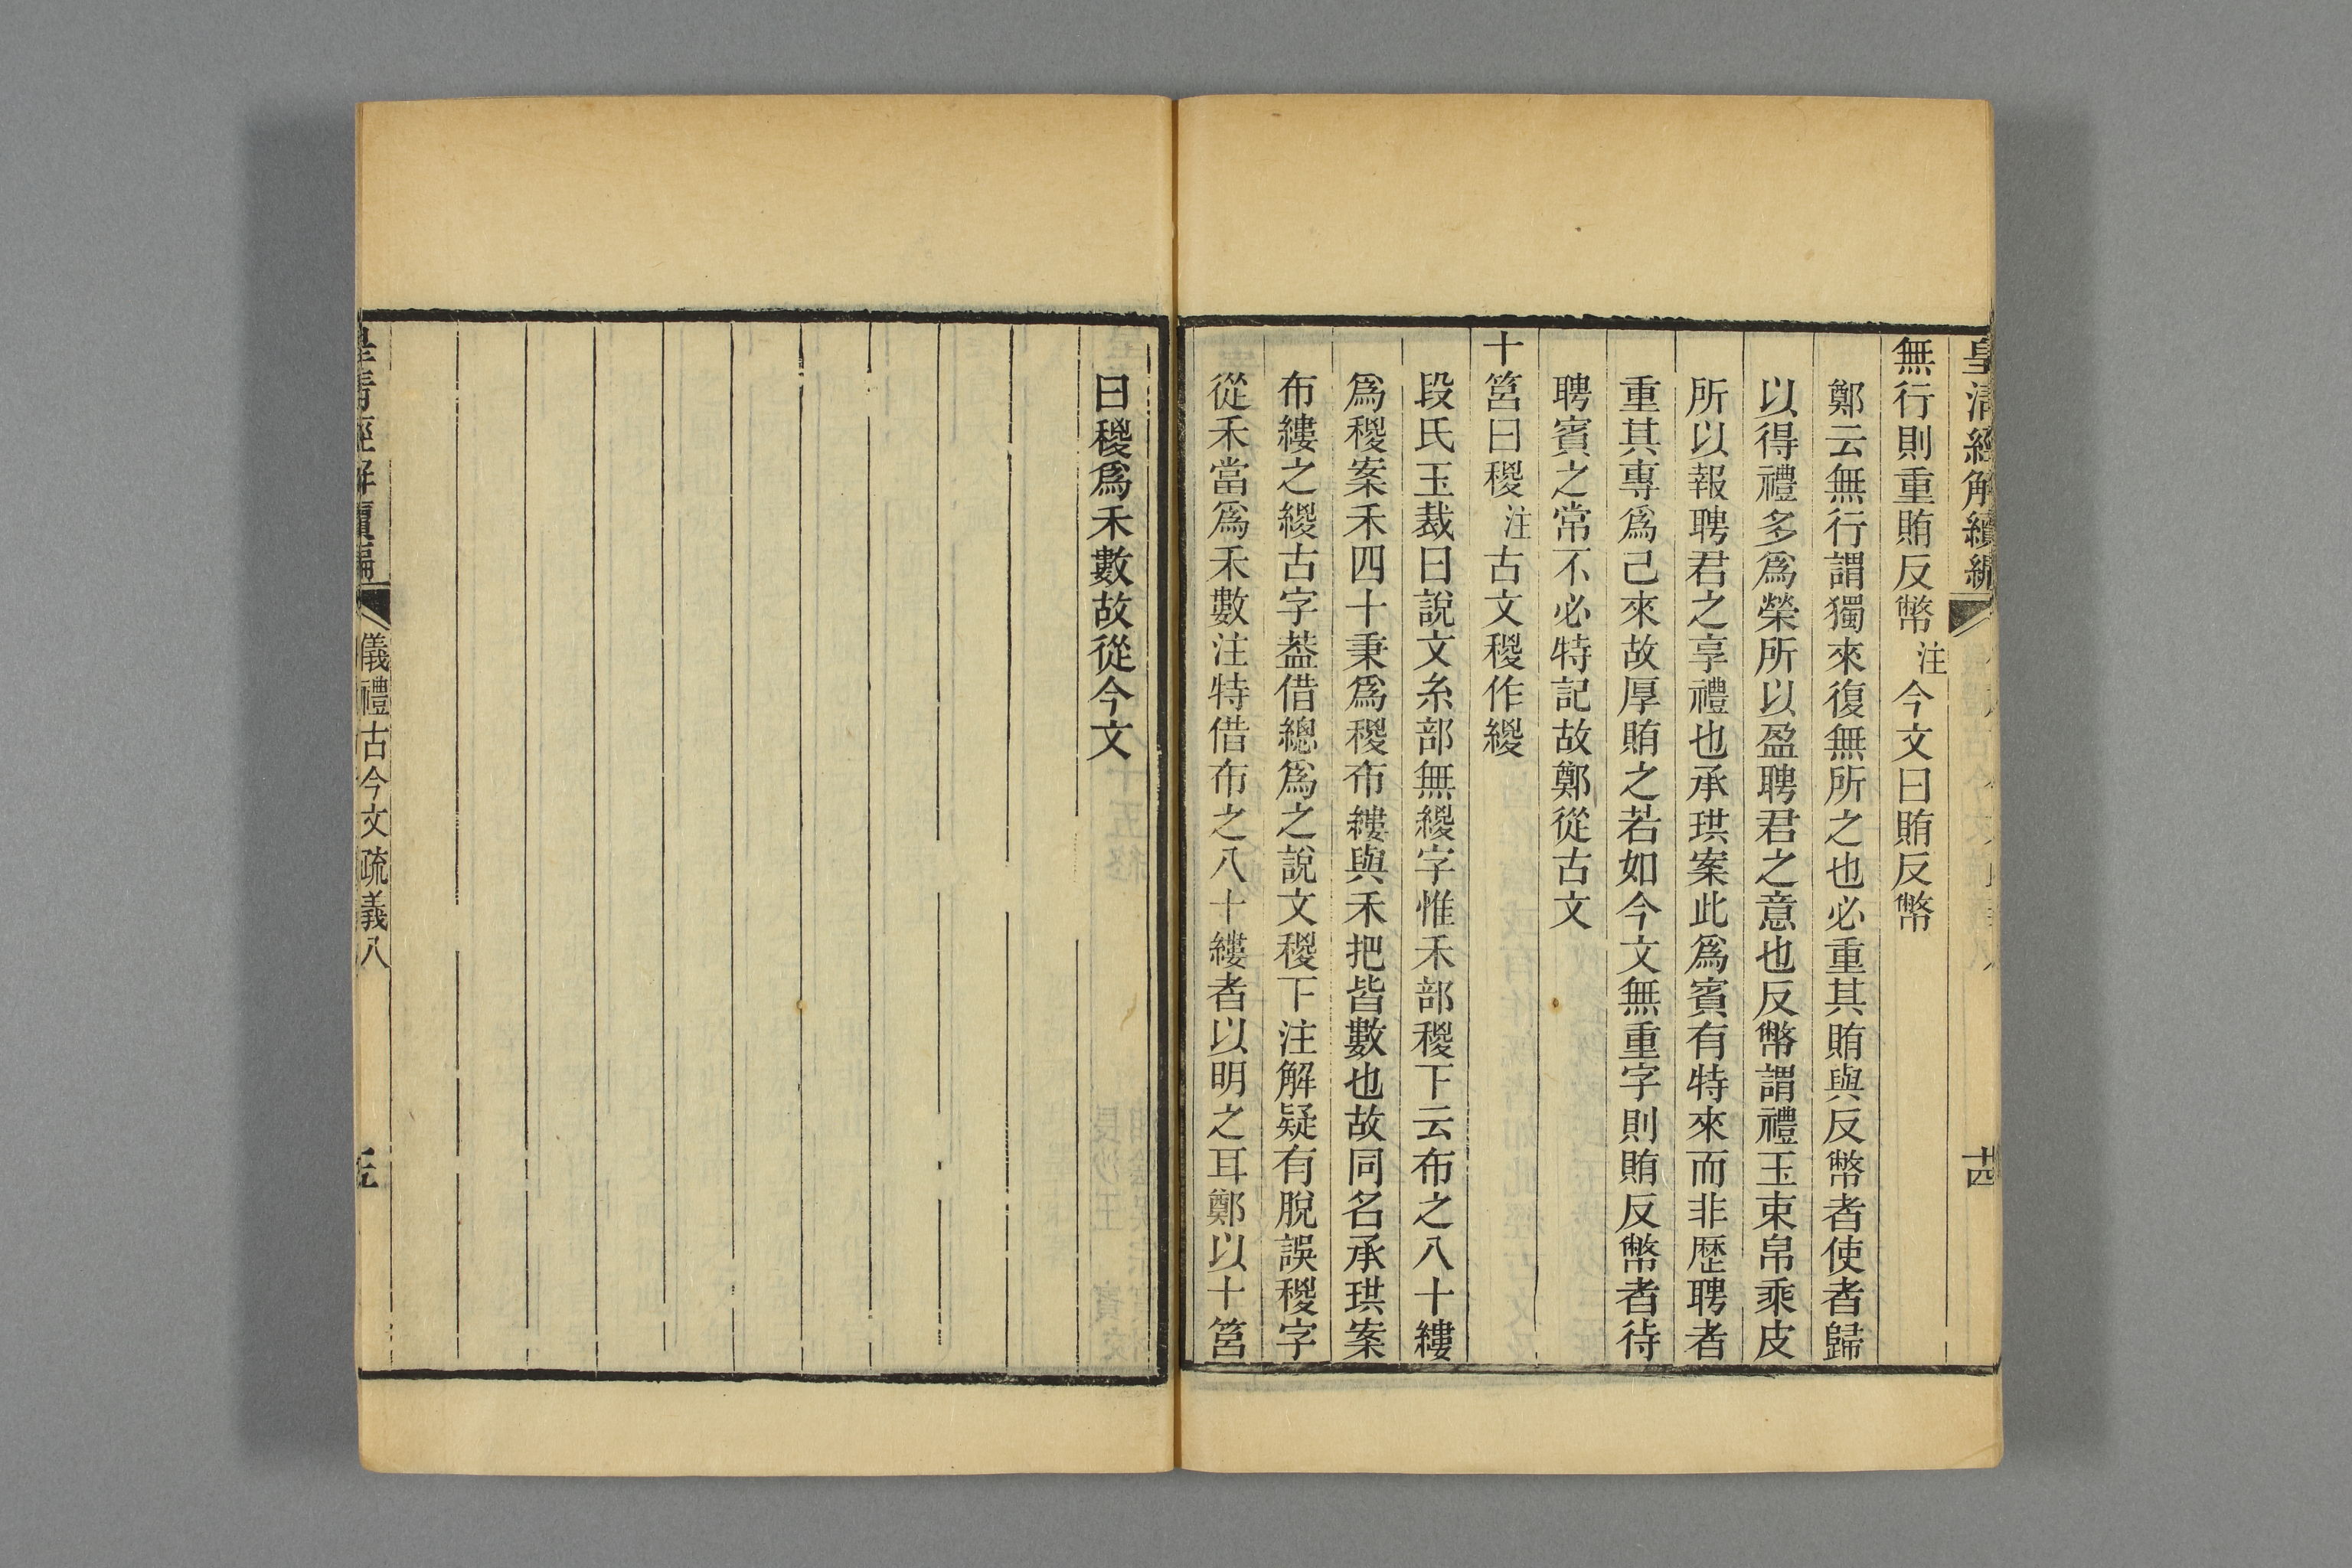 皇清經解續編
十四
無行則重賄反幣注今文曰賄反幣
鄭云無行謂獨來復無所之也必重其賄與反幣者使者歸
以得禮多爲榮所以盈聘君之意也反幣謂禮玉束帛乘皮
所以報聘君之享禮也承珙案此爲賓有特來而非歷聘者
重其專爲己來故厚賄之若如今文無重字則賄反幣者待
聘賓之常不必特記故鄭從古文
十筥曰稯注古文稯作緵
段氏玉裁曰說文糸部無緵字惟禾部稯下云布之八十縷
爲稯案禾四十秉爲稯布縷與禾把皆數也故同名承珙案
布縷之緵古字葢借總爲之說文稯下注解疑有脫誤稯字
從禾當爲禾數注特借布之八十縷者以明之耳鄭以十筥
曰稯爲禾數故從今文
皇清經解續編
儀禮古今文疏義八